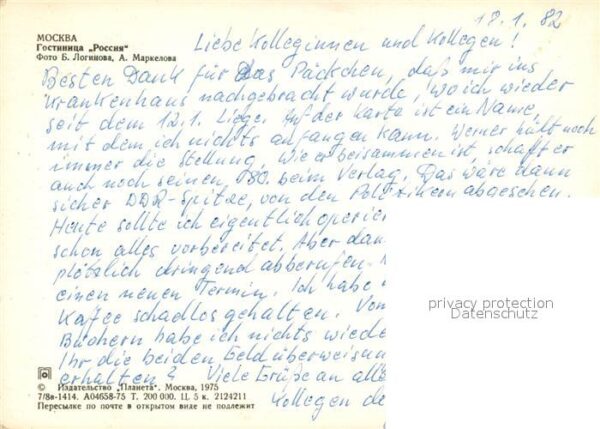 18.1.82
МОСКВА
Гостиница „Россия"
Фото Б. Логинова, А. Маркелова
Liebe Kolleginnen und Kollegen!
Besten Dank für das Päckchen, daß mir ins
Krankenhaus nachgebracht wurde, wo ich wieder
seit dem 12.1. liege. Auf der Karte ist ein Name,
mit dem ich nichts anfangen kann. Werner hält noch
immer die Stellung, wie er beisammen ist, schafft er
auch noch seinen 80. beim Verlag. Das wäre dann
sicher DDR-Spitze, von den Politikern abgesehen.
Heute sollte ich eigentlich operie
schon alles vorbereitet. Aber dan
plötzlich dringend abberufen.
einen neuen Termin. Ich habe
Kaffee schadlos gehalten. Von
Büchern habe ich nichts wiede
Ihr die beiden Geldüberweisun
erhalten? Viele Grüße an alle
Kollegen de
privacy protection
Datenschutz
© Издательство „Планета". Москва, 1975
7/8в-1414. А04658-75 Т. 200 000. Ц. 5 к. 2124211
Пересылке по почте в открытом виде не подлежит